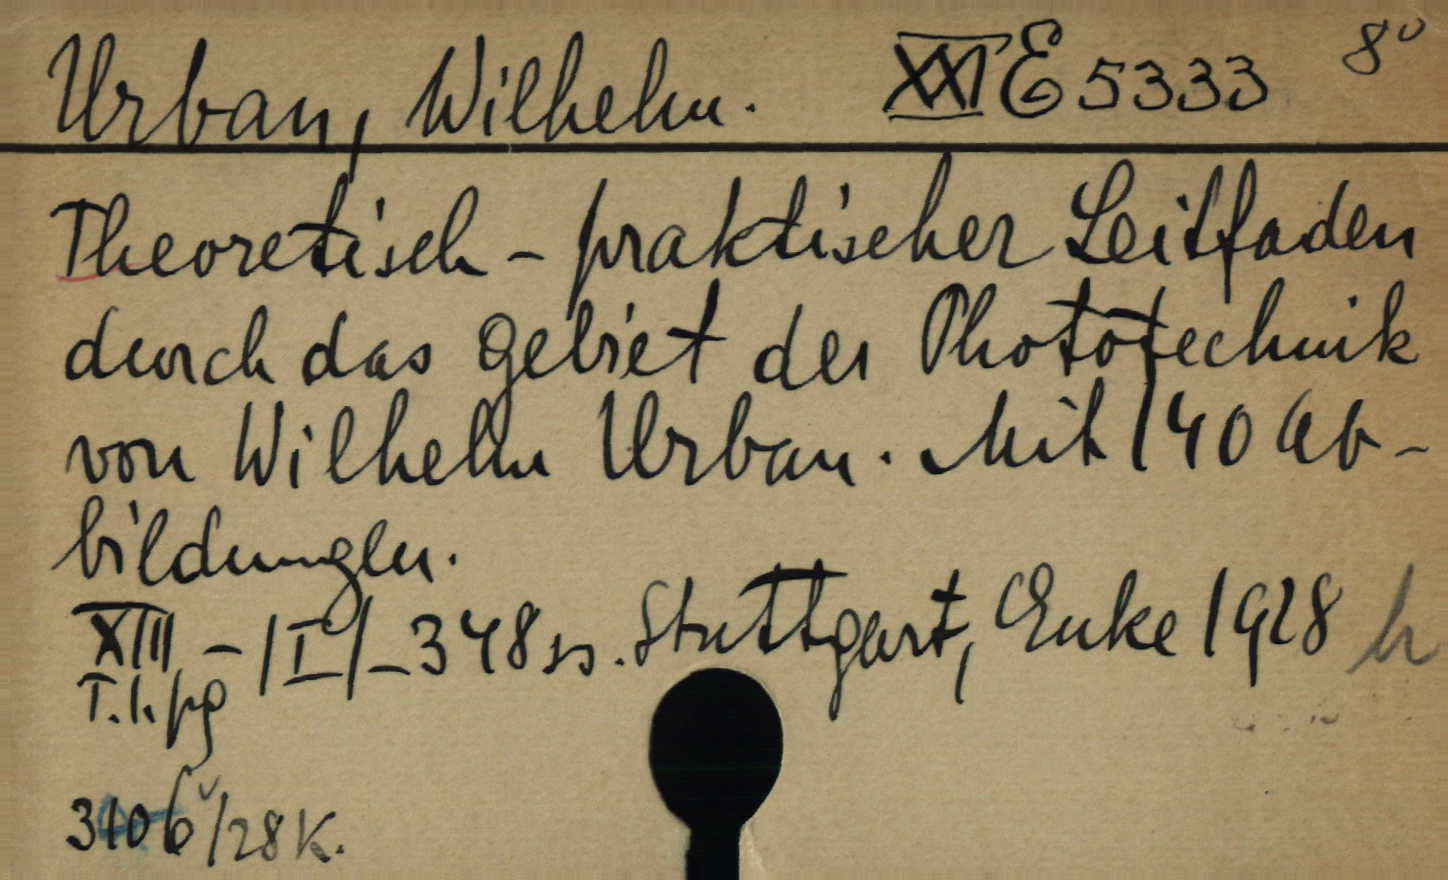 Urban, Wilhelm. XXI E 5333 8°
Theoretisch-praktischer Leitfaden
durch das Gebiet der Phototechnik
von Wilhelm Urban. Mit 140 Ab-
bildungen.
XIII - /I/ - 348 ss. Stuttgart, Enke 1928 h
T. 1. pg
3406/28 K.